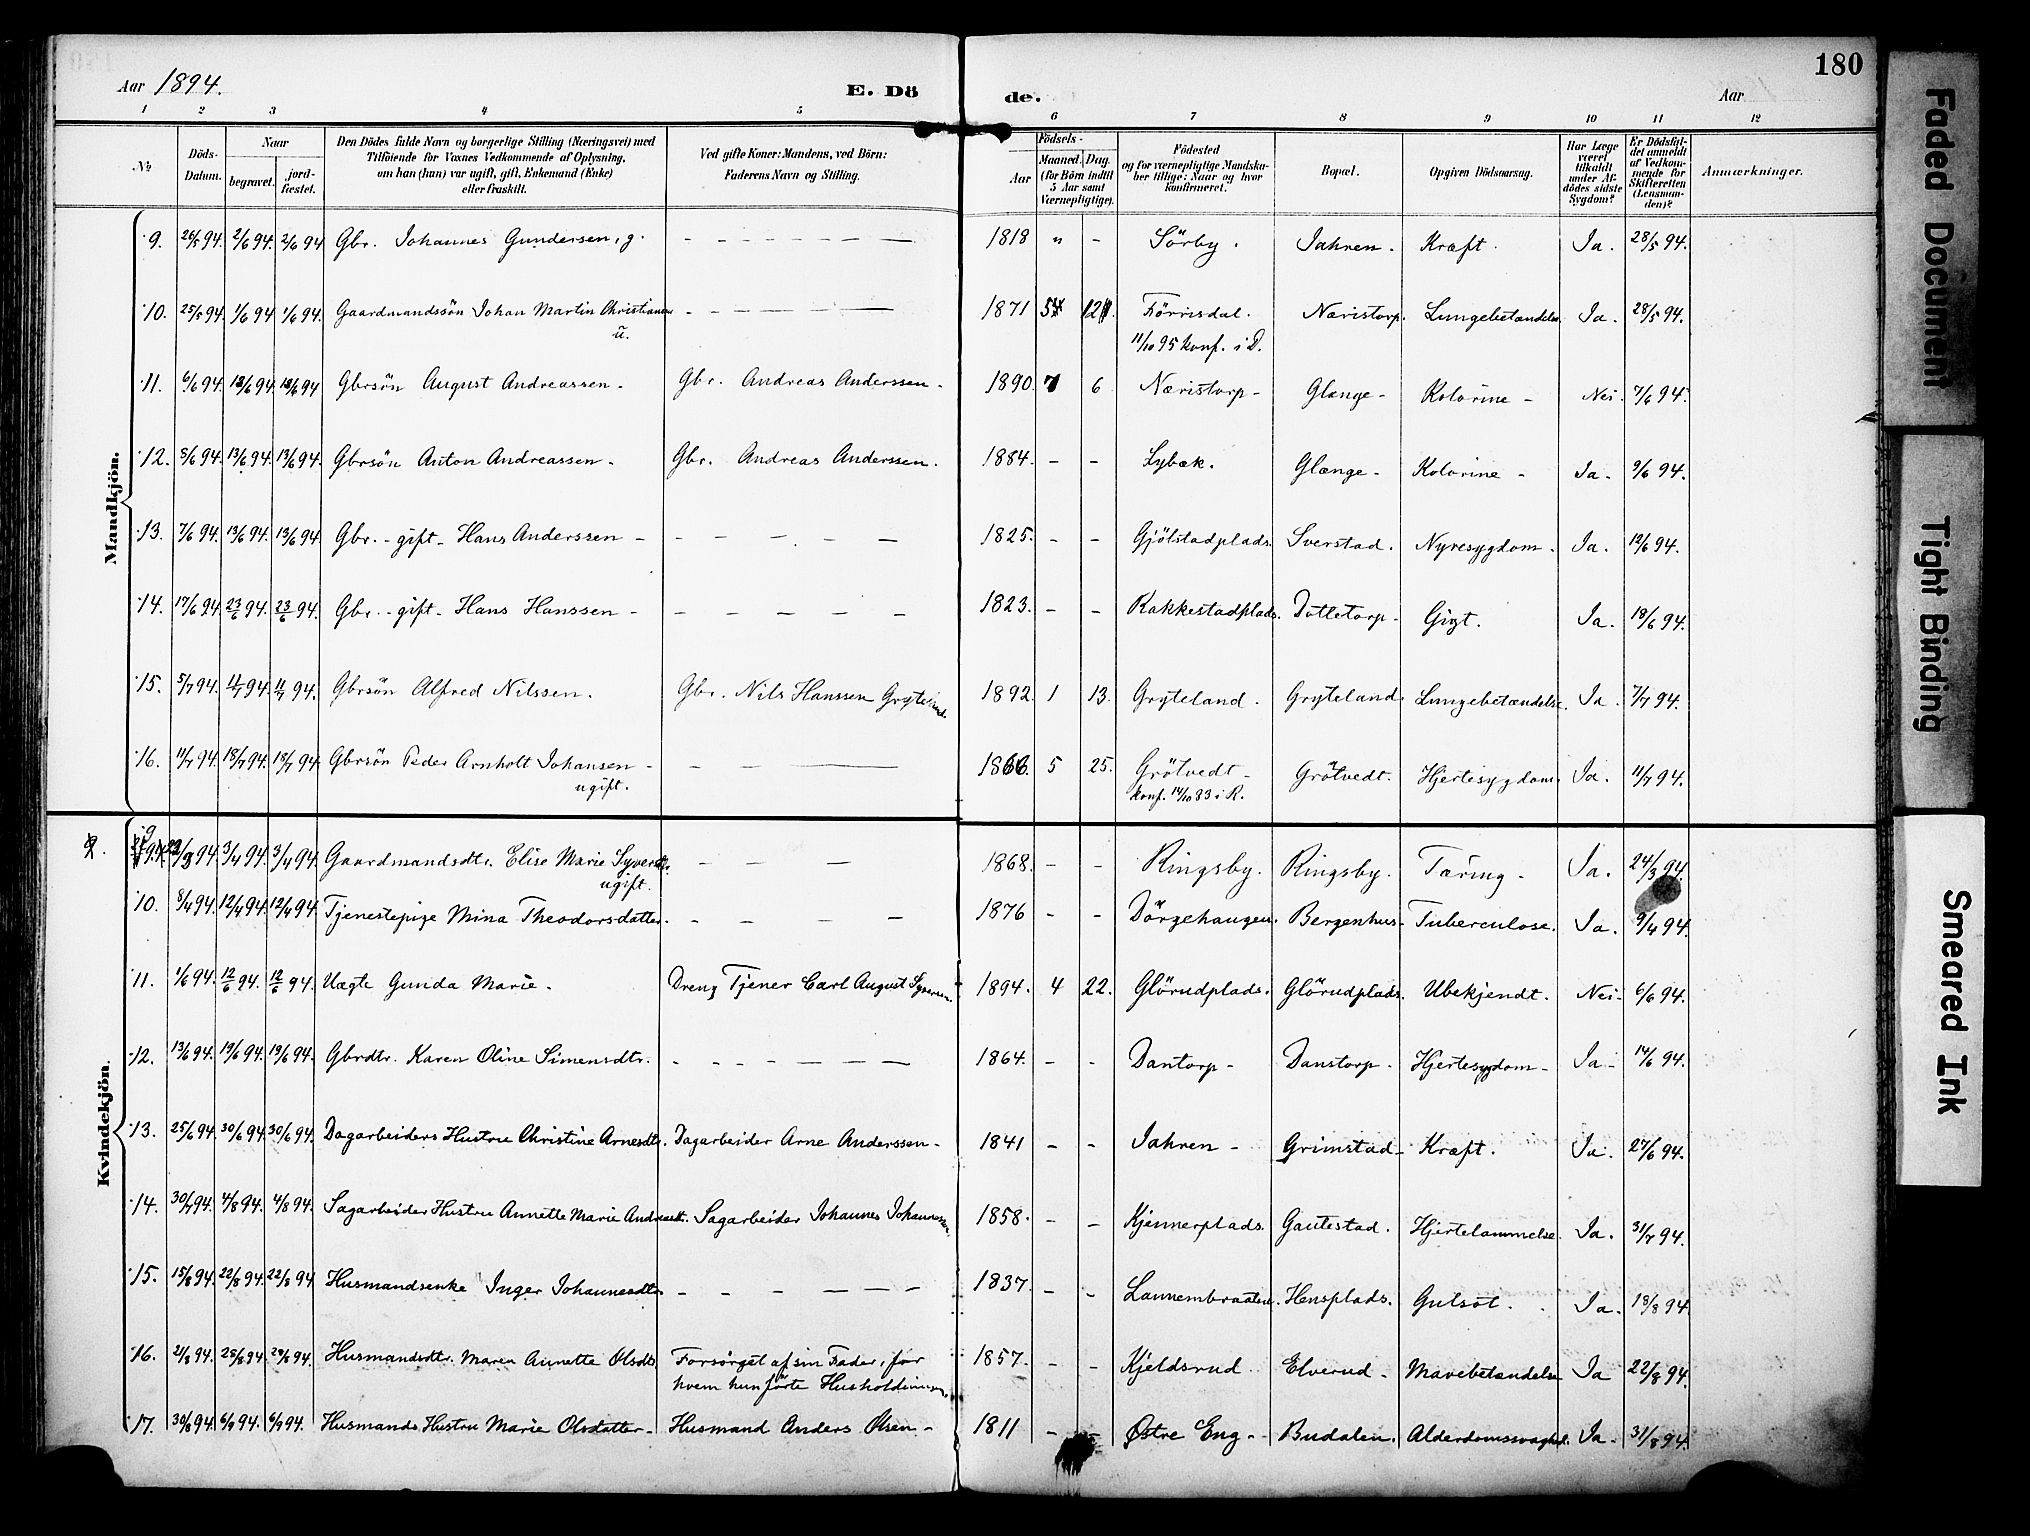 180
Aar 1894.
E. Dö
de.
Aar
1 2 3 4 5 6 7 8 9 10 11 12
No.
Döds-Datum.
Naar
begravet.
jord-fæstet.
Den Dödes fulde Navn og borgerlige Stilling (Næringsvei) med Tilföiende for Voxnes Vedkommende af Oplysning, om han (hun) var ugift, gift, Enkemand (Enke) eller fraskilt.
Ved gifte Koner: Mandens, ved Börn: Faderens Navn og Stilling.
Födsels-
Aar
Maaned. Dag.
(for Börn indtil 5 Aar samt Værnepligtige).
Födested og for værnepligtige Mandskaber tillige: Naar og hvor konfirmeret.
Bopæl.
Opgiven Dödsaarsag.
Har Læge været tilkaldt under Afdödes sidste Sygdom?
Er Dödsfaldet anmeldt af Vedkommende for Skifteretten (Lensmanden)?
Anmærkninger.
Mandkjön.
9. 26/5 94. 2/6 94. 2/6 94 Gbr. Johannes Gundersen, g. - 1818 " - Sörby. Jahren. Kræft. Ja. 28/5 94.
10. 25/5 94. 1/6 94 1/6 94. Gaardmandssön Johan Martin Christiansen - 1871 Förrisdal. Næristorp. Lungebetændelse Ja. 28/5 94.
u. 11/10 95 konf. i D.
11. 6/6 94. 13/6 94 13/6 94 Gbrsön August Andreassen - Gbr. Andreas Anderssen. 1890. 7 6 Næristorp - Glænge - Kolorine - Nei. 7/6 94.
12. 8/6 94. 13/6 94. 13/6 94. Gbrsön Anton Andreassen - Gbr. Andreas Anderssen. 1884. - - Lybæk. Glænge - Kolorine - Ja. 9/6 94.
13. 7/6 94. 13/6 94. 13/6 94. Gbr. - gift - Hans Anderssen - 1825. - - Gjölstadplads. Sverstad. Nyresygdom. Ja. 12/6 94.
14. 17/6 94. 23/6 94. 23/6 94. Gbr. - gift - Hans Hanssen - 1823. - - Rakkestadplads. Dotletorp - Gigt. Ja. 18/6 94.
15. 5/7 94. 11/7 94. 11/7 94. Gbrsön Alfred Nilssen. Gbr. Nils Hanssen Gryteland. 1892. 1 13. Gryteland. Gryteland. Lungebetændelse. Ja. 7/7 94.
16. 11/7 94. 18/7 94. 18/7 94. Gbrsön Peder Arnholt Johansen - 1866. 5 25. Grötvedt - Grötvedt. Hjertesygdom. Ja. 11/7 94.
ugift. konf. 14/10 83 i R.
Kvindekjön.
9. 94. 3/4 94. 3/4 94. Gaardmandsdtr. Elise Marie Syversdtr. - 1868. - - Ringsby. Ringsby. Tæring - Ja. 24/3 94.
ugift.
10. 8/4 94. 12/4 94. 12/4 94. Tjenestepige Mina Theodorsdatter. - 1876 - - Dörgehaugen. Bergenhus. Tuberculose. Ja. 9/4 94.
11. 1/6 94. 12/6 94. 12/6 94. Uægte Gunda Marie. Dreng Tjener Carl August Syversen. 1894. 4 22. Glörudplads. Glörudplads. Ubekjendt. Nei. 6/6 94.
12. 13/6 94. 19/6 94. 19/6 94. Gbrdtr. Karen Oline Simensdtr. - 1864. - - Dantorp - Danstorp. Hjertesygdom - Ja - 14/6 94.
13. 25/6 94. 30/6 94. 30/6 94. Dagarbeiders Hustru Christine Arnesdtr. Dagarbeider Arne Anderssen - 1841 - - Jahren - Grimstad - Kræft. Ja. 27/6 94.
14. 30/7 94. 4/8 94. 4/8 94. Sagarbeider Hustru Annette Marie Andreasdt. Sagarbeider Johannes Johannessen. 1858. - - Kjennerplads. Gautestad. Hjertelammelse. Ja. 31/7 94.
15. 15/8 94. 22/8 94. 22/8 94 Husmandsenke Inger Johannesdtr - 1837. - - Lannembraaten. Hensplads. Gulsot. Ja. 18/8 94.
16. 21/8 94. 28/8 94. 28/8 94. Husmandsdtr. Maren Annette Olsdtr. Forsörget af sin Fader, for 1857. - - Kjeldsrud. Elverud - Mavebetændelse Ja 22/8 94.
hvem hun förte Husholdningen.
17. 30/8 94. 6/9 94. 6/9 94. Husmands Hustru Marie Olsdatter - Husmand Anders Olsen - 1811 - - Østre Eng - Budalen. Alderdomssvaghed. Ja. 31/8 94.
Faded Document
Tight Binding
Smeared Ink